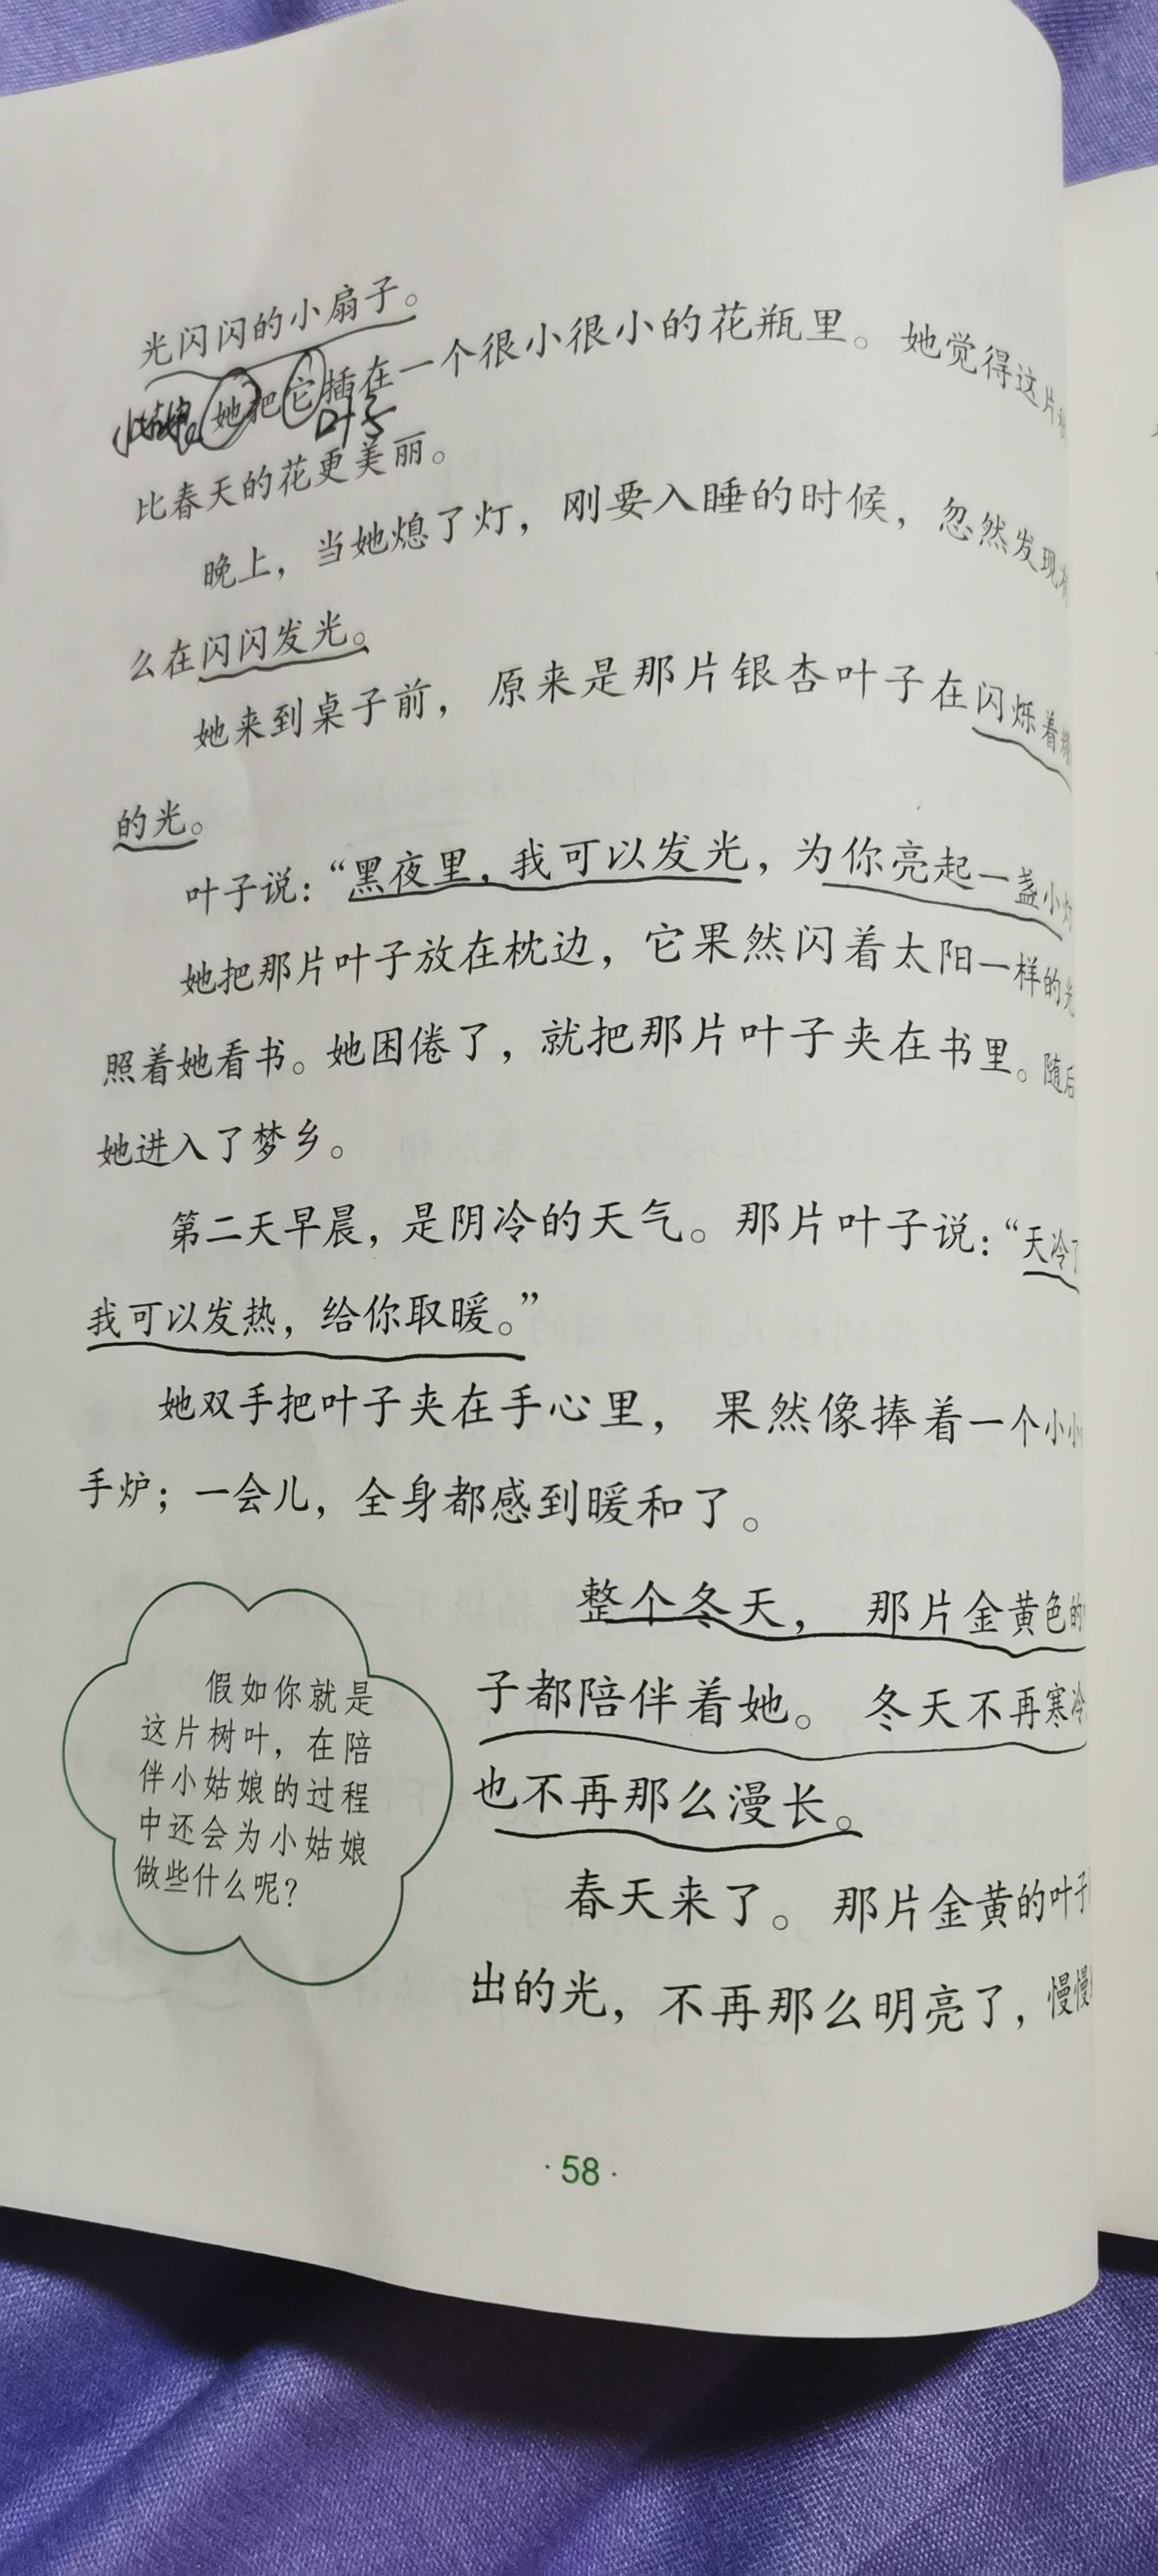 光闪闪的小扇子。
她把它插在一个很小很小的花瓶里。她觉得这片
小姑娘 叶子
比春天的花更美丽。
晚上，当她熄了灯，刚要入睡的时候，忽然发现
么在闪闪发光。
她来到桌子前，原来是那片银杏叶子在闪烁着
的光。
叶子说：“黑夜里，我可以发光，为你亮起一盏小
她把那片叶子放在枕边，它果然闪着太阳一样的
照着她看书。她困倦了，就把那片叶子夹在书里。随后
她进入了梦乡。
第二天早晨，是阴冷的天气。那片叶子说：“天冷
我可以发热，给你取暖。”
她双手把叶子夹在手心里，果然像捧着一个小小
手炉；一会儿，全身都感到暖和了。
整个冬天，那片金黄色的
子都陪伴着她。冬天不再寒冷
也不再那么漫长。
春天来了。那片金黄的叶子
出的光，不再那么明亮了，慢慢
假如你就是
这片树叶，在陪
伴小姑娘的过程
中还会为小姑娘
做些什么呢？
·58·